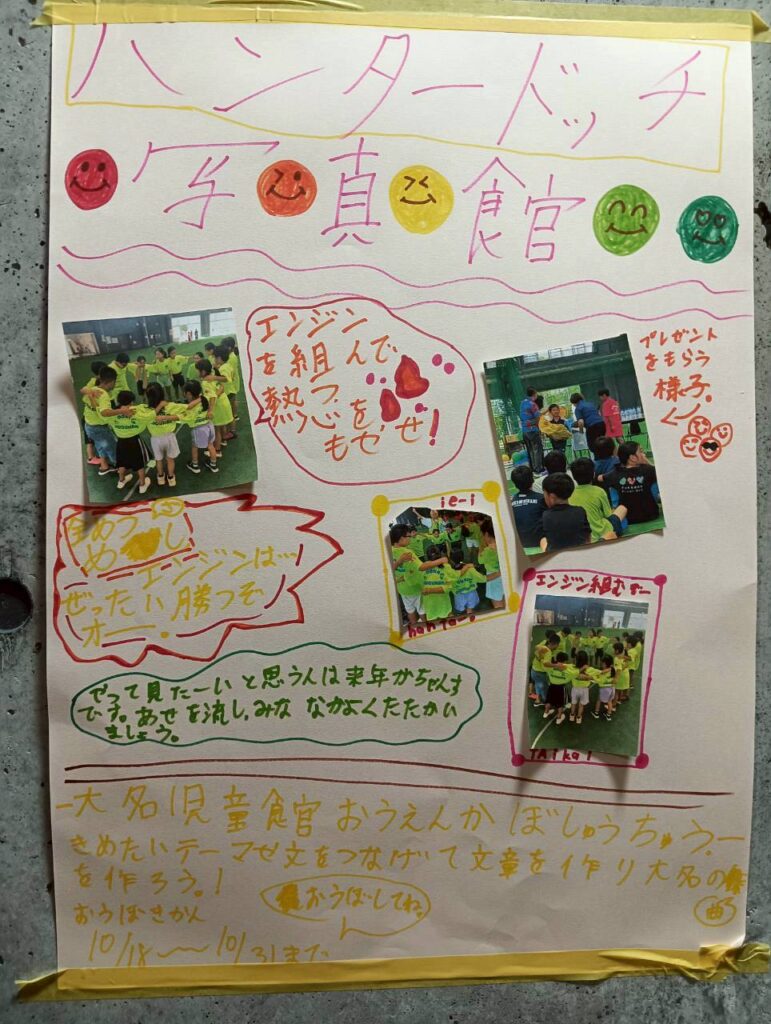 ハンタードッチ
写真館
エンジン
を組んで
熱つ
心を
もやせ!
プレゼント
をもらう
様子。
ie-i
hanta-
め し
エンジンは…
ぜったい勝つぞ
オー。
エンジン組むぞー
TAikai
やって見たーいと思う人は来年かちゃんす
です。あせを流し、みな なかよくたたかい
ましょう。
一大名児童館おうえんかぼしゅうちゅう。ー
きめたいテーマせ文をつなげて文章を作り大名の
を作ろう。!
おうぼきかん
おうぼしてね。
10/18〜〜10/31まで